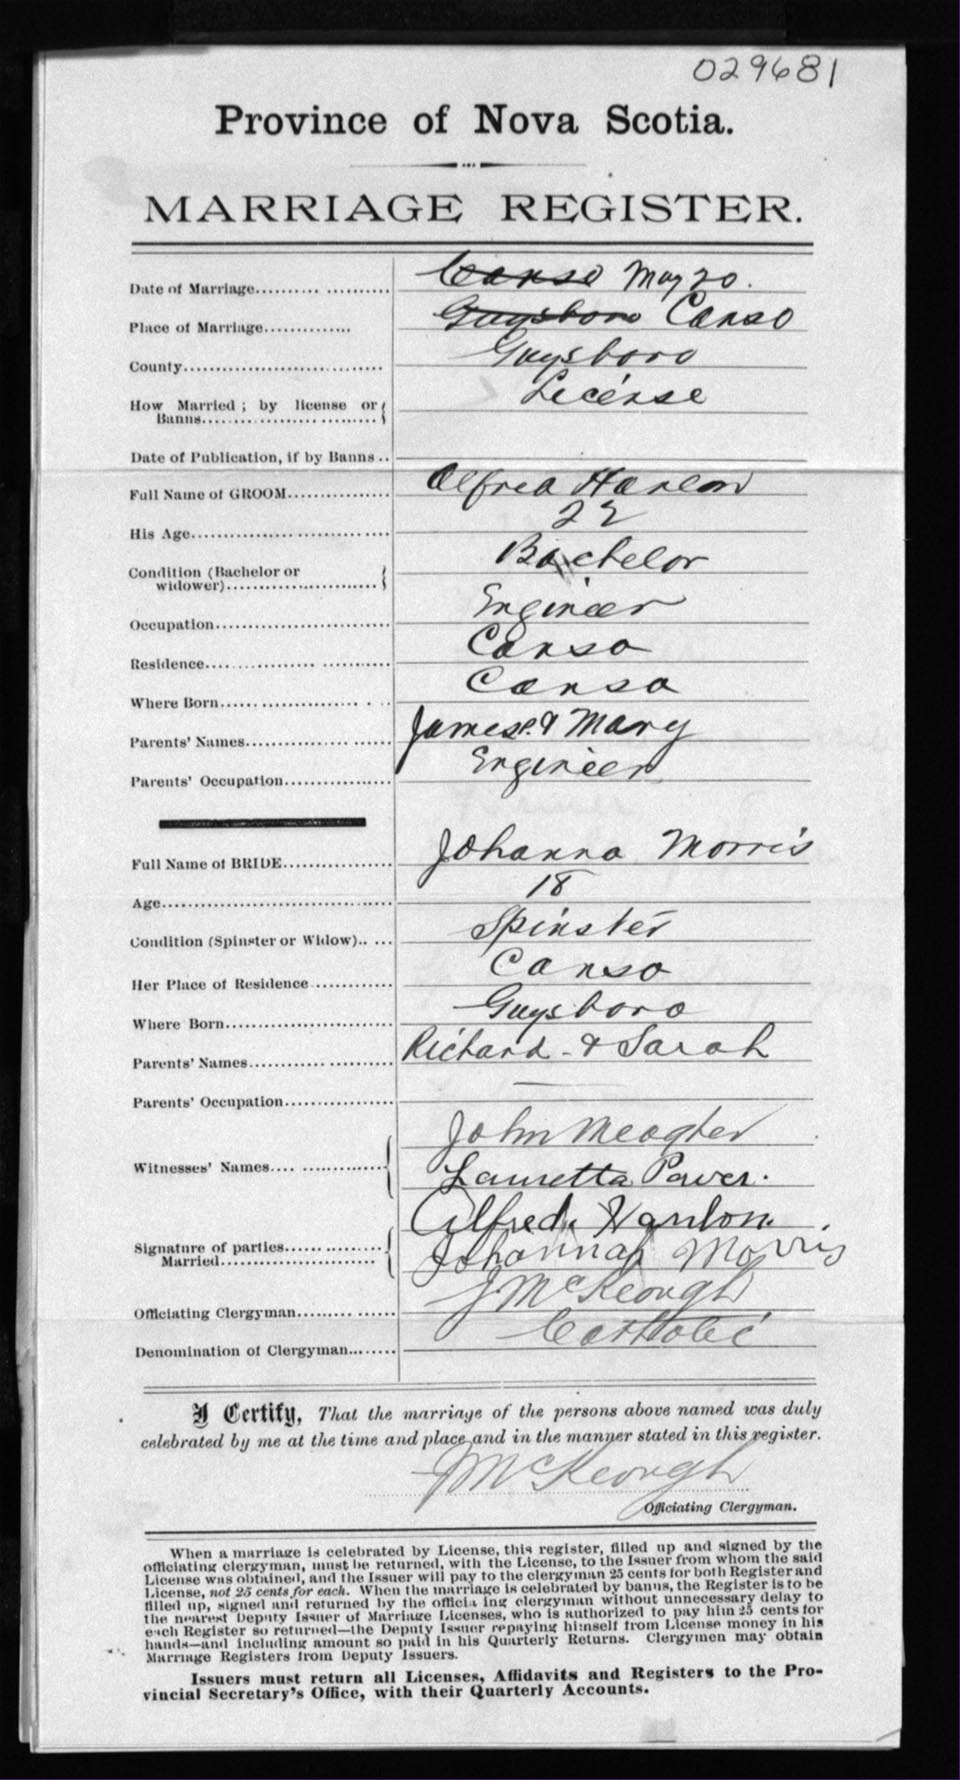 029681
Province of Nova Scotia.
MARRIAGE REGISTER.
Date of Marriage.................... Canso May 20.
Place of Marriage............. Guysboro Canso
County............................... Guysboro
How Married ; by license or Banns........................... License
Date of Publication, if by Banns ..
Full Name of GROOM................ Alfred Hanlon
His Age............................... 22
Condition (Bachelor or widower)........................ Bachelor
Occupation........................... Engineer
Residence............................ Canso
Where Born........................ Canso
Parents' Names..................... James P. & Mary
Parents' Occupation................. Engineer
Full Name of BRIDE................ Johanna Morris
Age..................................... 18
Condition (Spinster or Widow)..... Spinster
Her Place of Residence ............ Canso
Where Born........................... Guysboro
Parents' Names...................... Richard & Sarah
Parents' Occupation................. —
Witnesses' Names.................... John Meagher
Lauretta Power.
Signature of parties Married........................ Alfred Hanlon.
Johannah Morris
Officiating Clergyman............... J McKeough
Denomination of Clergyman........ Catholic
I Certify, That the marriage of the persons above named was duly
celebrated by me at the time and place and in the manner stated in this register.
J McKeough
Officiating Clergyman.
When a marriage is celebrated by License, this register, filled up and signed by the
officiating clergyman, must be returned, with the License, to the Issuer from whom the said
License was obtained, and the Issuer will pay to the clergyman 25 cents for both Register and
License, not 25 cents for each. When the marriage is celebrated by banns, the Register is to be
filled up, signed and returned by the officiating clergyman without unnecessary delay to
the nearest Deputy Issuer of Marriage Licenses, who is authorized to pay him 25 cents for
each Register so returned—the Deputy Issuer repaying himself from License money in his
hands—and including amount so paid in his Quarterly Returns. Clergymen may obtain
Marriage Registers from Deputy Issuers.
Issuers must return all Licenses, Affidavits and Registers to the Pro-
vincial Secretary's Office, with their Quarterly Accounts.